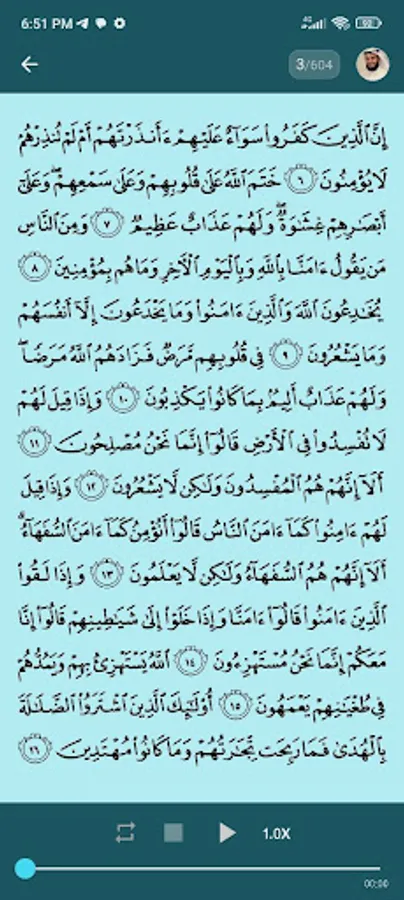 6:51 PM 4G 92
3/604
إِنَّ ٱلَّذِينَ كَفَرُوا۟ سَوَآءٌ عَلَيْهِمْ ءَأَنذَرْتَهُمْ أَمْ لَمْ تُنذِرْهُمْ
لَا يُؤْمِنُونَ ٦ خَتَمَ ٱللَّهُ عَلَىٰ قُلُوبِهِمْ وَعَلَىٰ سَمْعِهِمْ ۖ وَعَلَىٰٓ
أَبْصَٰرِهِمْ غِشَٰوَةٌ ۖ وَلَهُمْ عَذَابٌ عَظِيمٌ ٧ وَمِنَ ٱلنَّاسِ
مَن يَقُولُ ءَامَنَّا بِٱللَّهِ وَبِٱلْيَوْمِ ٱلْءَاخِرِ وَمَا هُم بِمُؤْمِنِينَ ٨
يُخَٰدِعُونَ ٱللَّهَ وَٱلَّذِينَ ءَامَنُوا۟ وَمَا يَخْدَعُونَ إِلَّآ أَنفُسَهُمْ
وَمَا يَشْعُرُونَ ٩ فِى قُلُوبِهِم مَّرَضٌ فَزَادَهُمُ ٱللَّهُ مَرَضًا ۖ
وَلَهُمْ عَذَابٌ أَلِيمٌۢ بِمَا كَانُوا۟ يَكْذِبُونَ ١٠ وَإِذَا قِيلَ لَهُمْ
لَا تُفْسِدُوا۟ فِى ٱلْأَرْضِ قَالُوٓا۟ إِنَّمَا نَحْنُ مُصْلِحُونَ ١١
أَلَآ إِنَّهُمْ هُمُ ٱلْمُفْسِدُونَ وَلَٰكِن لَّا يَشْعُرُونَ ١٢ وَإِذَا قِيلَ
لَهُمْ ءَامِنُوا۟ كَمَآ ءَامَنَ ٱلنَّاسُ قَالُوٓا۟ أَنُؤْمِنُ كَمَآ ءَامَنَ ٱلسُّفَهَآءُ ۗ
أَلَآ إِنَّهُمْ هُمُ ٱلسُّفَهَآءُ وَلَٰكِن لَّا يَعْلَمُونَ ١٣ وَإِذَا لَقُوا۟
ٱلَّذِينَ ءَامَنُوا۟ قَالُوٓا۟ ءَامَنَّا وَإِذَا خَلَوْا۟ إِلَىٰ شَيَٰطِينِهِمْ قَالُوٓا۟ إِنَّا
مَعَكُمْ إِنَّمَا نَحْنُ مُسْتَهْزِءُونَ ١٤ ٱللَّهُ يَسْتَهْزِئُ بِهِمْ وَيَمُدُّهُمْ
فِى طُغْيَٰنِهِمْ يَعْمَهُونَ ١٥ أُو۟لَٰٓئِكَ ٱلَّذِينَ ٱشْتَرَوُا۟ ٱلضَّلَٰلَةَ
بِٱلْهُدَىٰ فَمَا رَبِحَت تِّجَٰرَتُهُمْ وَمَا كَانُوا۟ مُهْتَدِينَ ١٦
1.0X
00:00